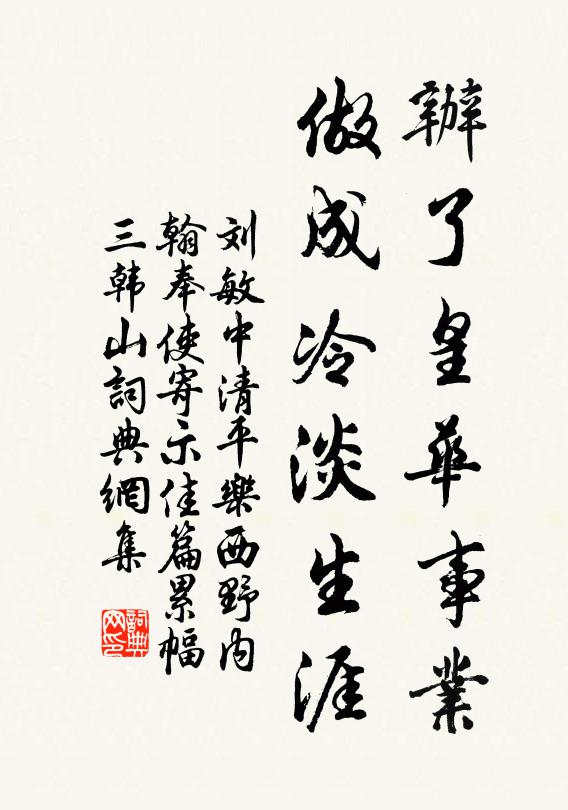 辦了皇華事業
做成冷淡生涯
刘敏中清平樂西野内
翰奉使寄示佳篇累幅
三韩山詞典網集
詞典
网印